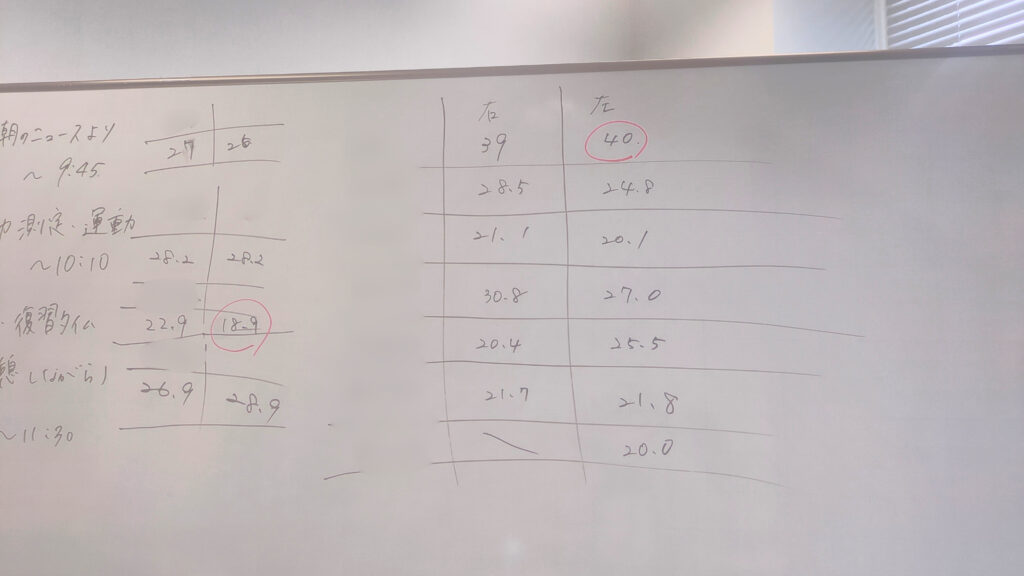 朝のニュースより
～ 9:45
27 26
力測定・運動
～10:10
28.2 28.2
・復習タイム
22.9 18.9
憩しながら)
26.9 28.9
～11:30
右 左
39 40.
28.5 24.8
21.1 20.1
30.8 27.0
20.4 25.5
21.7 21.8
＼ 20.0